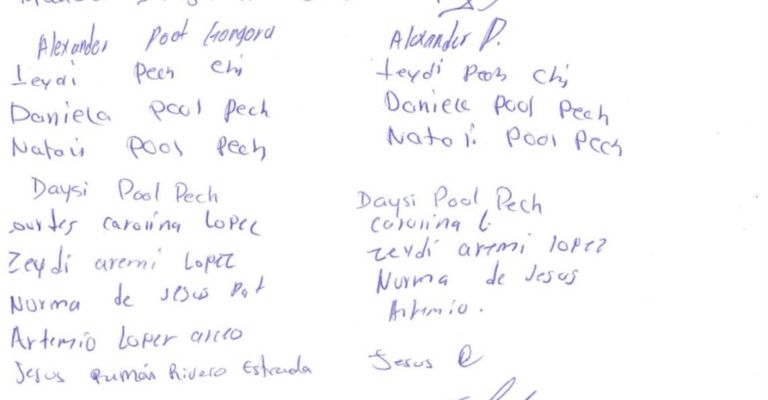 Alexander Poot Gongora Alexander P.
Leydi Pech Chi Leydi Pech Chi
Daniela Pool Pech Daniela Pool Pech
Pool Pech Pool Pech
Daysi Pool Pech Daysi Pool Pech
Carolina Lopez Carolina L.
Zeydi aremi Lopez Zeydi aremi lopez
Norma de Jesus Pot Norma de Jesus
Artemio Lopez Artemio.
Jesus Rivero Estrada Jesus